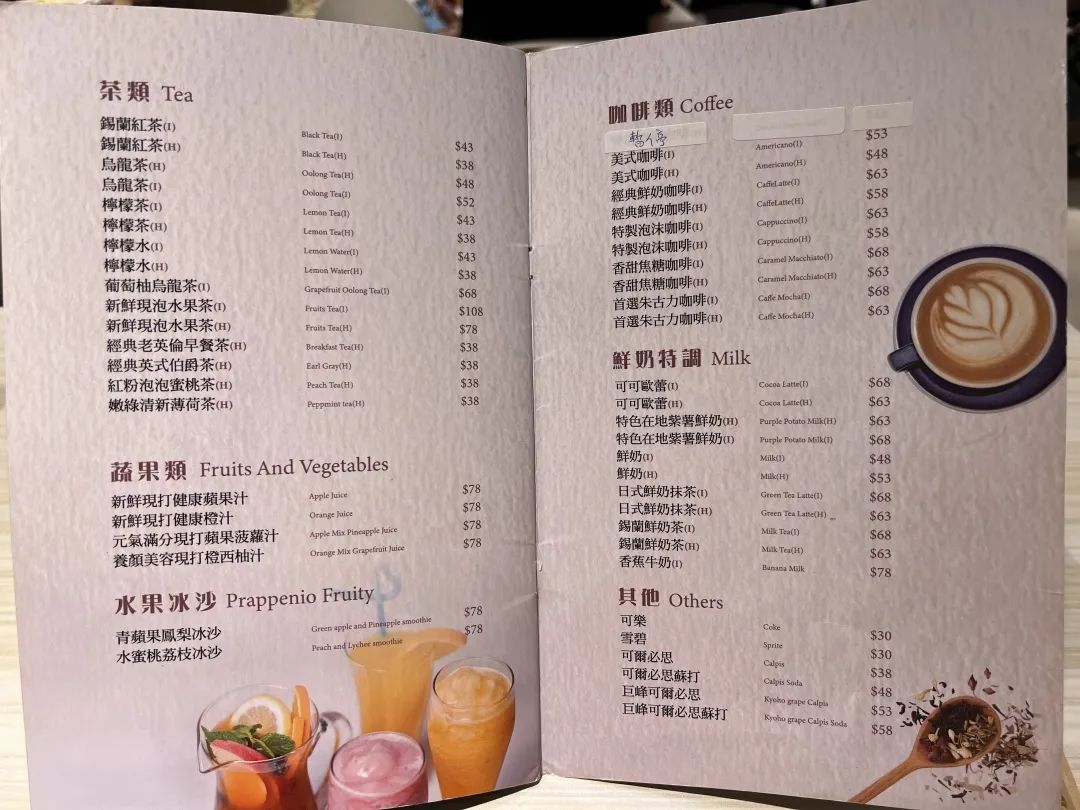 茶類 Tea
錫蘭紅茶(I) Black Tea(I) $43
錫蘭紅茶(H) Black Tea(H) $38
烏龍茶(H) Oolong Tea(H) $48
烏龍茶(I) Oolong Tea(I) $52
檸檬茶(I) Lemon Tea(I) $43
檸檬茶(H) Lemon Tea(H) $38
檸檬水(I) Lemon Water(I) $43
檸檬水(H) Lemon Water(H) $38
葡萄柚烏龍茶(I) Grapefruit Oolong Tea(I) $68
新鮮現泡水果茶(I) Fruits Tea(I) $108
新鮮現泡水果茶(H) Fruits Tea(H) $78
經典老英倫早餐茶(H) Breakfast Tea(H) $38
經典英式伯爵茶(H) Earl Gray(H) $38
紅粉泡泡蜜桃茶(H) Peach Tea(H) $38
嫩綠清新薄荷茶(H) Peppmint tea(H) $38
蔬果類 Fruits And Vegetables
新鮮現打健康蘋果汁 Apple Juice $78
新鮮現打健康橙汁 Orange Juice $78
元氣滿分現打蘋果菠蘿汁 Apple Mix Pineapple Juice $78
養顏美容現打橙西柚汁 Orange Mix Grapefruit Juice $78
水果冰沙 Prappenio Fruity
青蘋果鳳梨冰沙 Green apple and Pineapple smoothie $78
水蜜桃荔枝冰沙 Peach and Lychee smoothie $78
咖啡類 Coffee
暫停
美式咖啡(I) Americano(I) $53
美式咖啡(H) Americano(H) $48
經典鮮奶咖啡(I) CaffeLatte(I) $63
經典鮮奶咖啡(H) CaffeLatte(H) $58
特製泡沫咖啡(I) Cappuccino(I) $63
特製泡沫咖啡(H) Cappuccino(H) $58
香甜焦糖咖啡(I) Caramel Macchiato(I) $68
香甜焦糖咖啡(H) Caramel Macchiato(H) $63
首選朱古力咖啡(I) Caffe Mocha(I) $68
首選朱古力咖啡(H) Caffe Mocha(H) $63
鮮奶特調 Milk
可可歐蕾(I) Cocoa Latte(I) $68
可可歐蕾(H) Cocoa Latte(H) $63
特色在地紫薯鮮奶(H) Purple Potato Milk(H) $63
特色在地紫薯鮮奶(I) Purple Potato Milk(I) $68
鮮奶(I) Milk(I) $48
鮮奶(H) Milk(H) $53
日式鮮奶抹茶(I) Green Tea Latte(I) $68
日式鮮奶抹茶(H) Green Tea Latte(H) $63
錫蘭鮮奶茶(I) Milk Tea(I) $68
錫蘭鮮奶茶(H) Milk Tea(H) $63
香蕉牛奶(I) Banana Milk $78
其他 Others
可樂 Coke $30
雪碧 Sprite $30
可爾必思 Calpis $38
可爾必思蘇打 Calpis Soda $48
巨峰可爾必思 Kyoho grape Calpis $53
巨峰可爾必思蘇打 Kyoho grape Calpis Soda $58